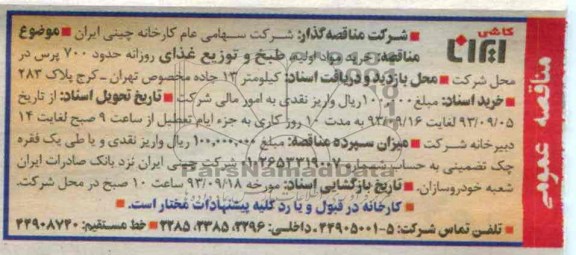 مناقصه عمومی
کاشی
ایرانا
شرکت مناقصه‌گذار: شرکت سهامی عام کارخانه چینی ایران ■ موضوع
مناقصه: خرید مواد اولیه، طبخ و توزیع غذای روزانه حدود ۷۰۰ پرس در
محل شرکت ■ محل بازدید و دریافت اسناد: کیلومتر ۱۳ جاده مخصوص تهران ـ کرج پلاک ۲۸۳
■ خرید اسناد: مبلغ ریال واریز نقدی به امور مالی شرکت ■ تاریخ تحویل اسناد: از تاریخ
۹۳/۰۹/۰۵ لغایت ۹۳/۰۹/۱۶ به مدت ۱۰ روز کاری به جزء ایام تعطیل از ساعت ۹ صبح لغایت ۱۴
دبیرخانه شرکت ■ میزان سپرده مناقصه: مبلغ ۱۰۰,۰۰۰,۰۰۰ ریال واریز نقدی و یا طی یک فقره
چک تضمینی به حساب شماره شرکت چینی ایران نزد بانک صادرات ایران
شعبه خودروسازان. ■ تاریخ بازگشایی اسناد: مورخه ۹۳/۰۹/۱۸ ساعت ۱۰ صبح در محل شرکت.
■ کارخانه در قبول و یا رد کلیه پیشنهادات مختار است. ■
■ تلفن تماس شرکت: ۵-۴۴۹۰۵۰۰۱، داخلی: ۳۲۹۶، ۳۳۸۵، ۳۲۸۵ ■ خط مستقیم: ۴۴۹۰۸۷۴۰
ParsNamadData